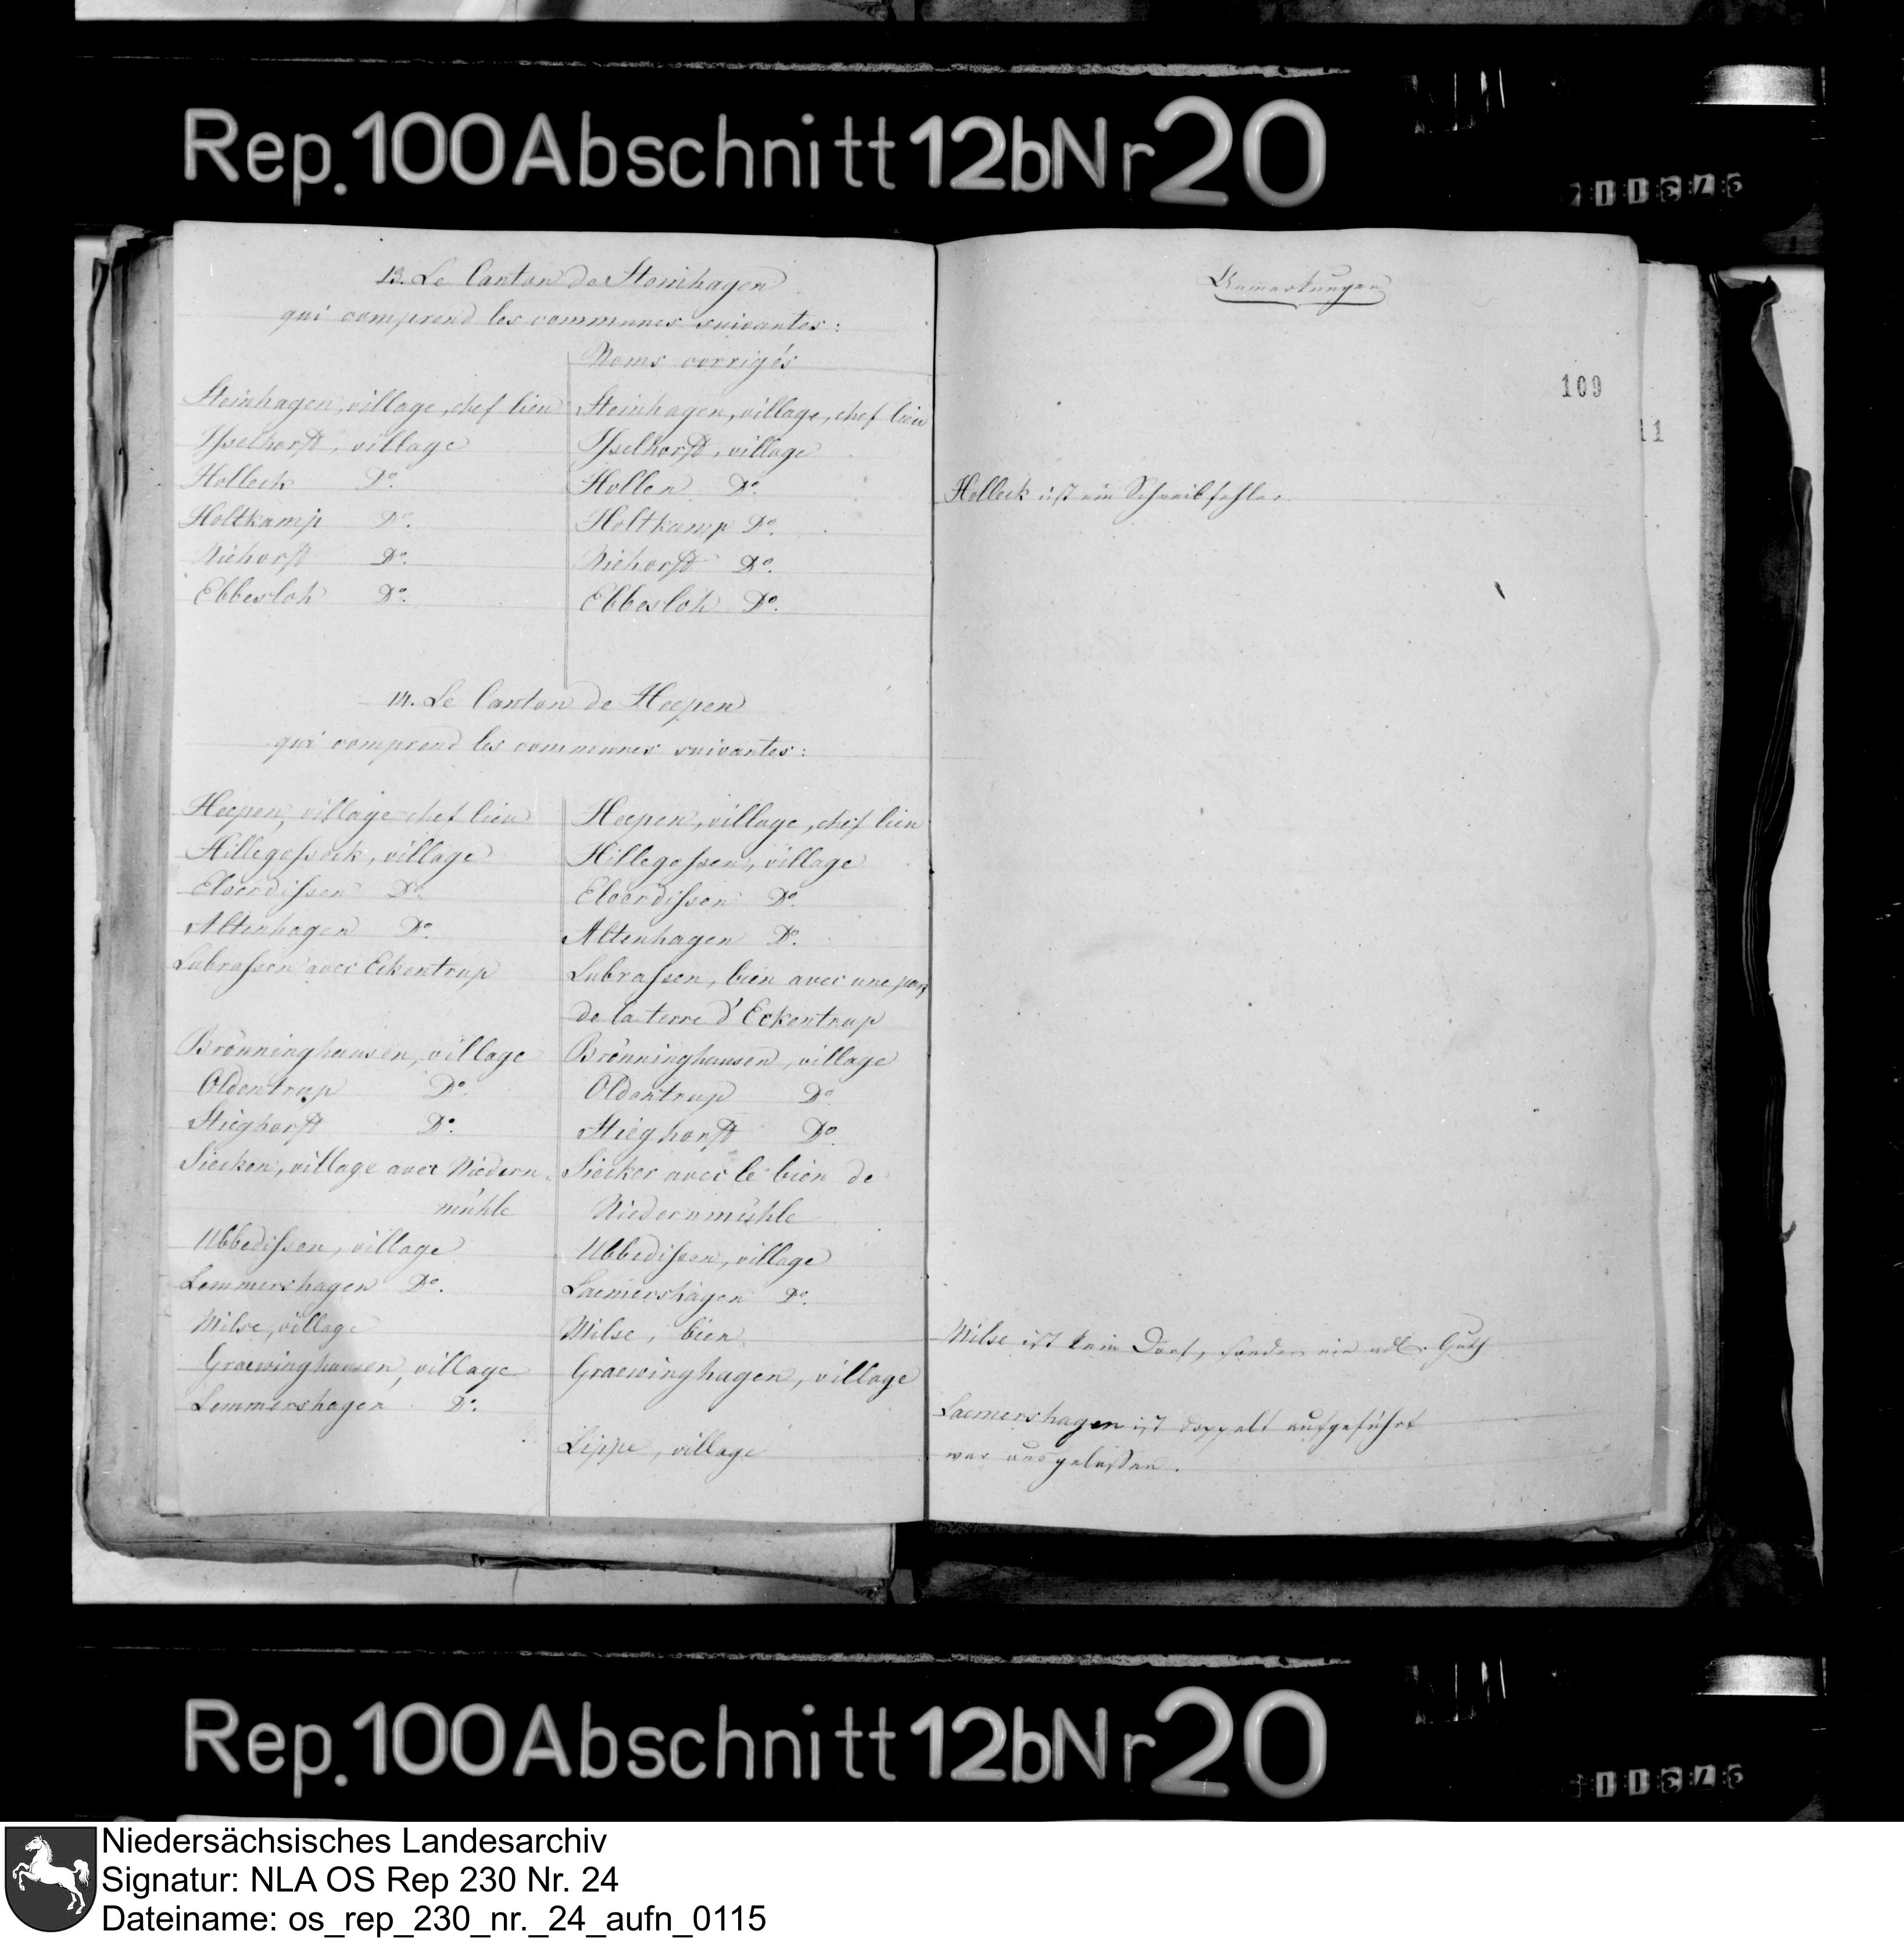 Rep. 100 Abschnitt 12b Nr 20
13. Le Canton de Steinhagen
qui comprend les communes suivantes:
Noms corrigés
Steinhagen, village, chef lieu Steinhagen, village, chef lieu
Isselhorst, village Isselhorst, village
Holleck Do. Hollen Do.
Holtkamp Do. Holtkamp Do.
Niehorst Do. Niehorst Do.
Ebbesloh Do. Ebbesloh Do.
14. Le Canton de Heepen
qui comprend les communes suivantes:
Heepen, village chef lieu Heepen, village, chef lieu
Hillegosseck, village Hillegossen, village
Elverdissen Do. Elverdissen Do.
Altenhagen Do. Altenhagen Do.
Lubrassen avec Eckentrup Lubrassen, bien avec une
de la terre d'Eckentrup
Brönninghausen, village Brönninghausen, village
Oldentrup Do. Oldentrup Do.
Stieghorst Do. Stieghorst Do.
Siecken, village avec Niedern- Siecker avec le bien de
mühle Niedernmühle
Ubbedissen, village Ubbedissen, village
Lemmershagen Do. Laemershagen Do.
Milse, village Milse, bien
Graewinghausen, village Graewinghagen, village
Lemmershagen Do.
Lippe, village
Bemerkungen
109
11
Holleck ist ein Schreibfehler
Milse ist kein Dorf, sondern ein adl. Guth
Laemershagen ist doppelt aufgeführt
war ausgelassen.
Rep. 100 Abschnitt 12b Nr 20
Niedersächsisches Landesarchiv
Signatur: NLA OS Rep 230 Nr. 24
Dateiname: os_rep_230_nr._24_aufn_0115